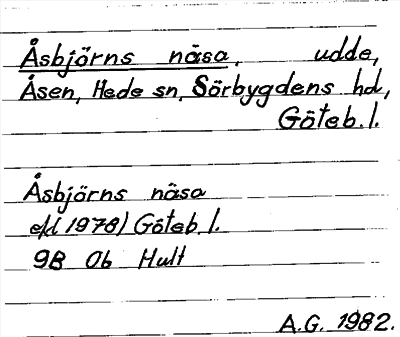 Åsbjörns näsa, udde,
Åsen, Hede sn, Sörbygdens hd,
Göteb. l.
Åsbjörns näsa
ekl 1978) Göteb. l.
9B 0b Hult
A.G. 1982.